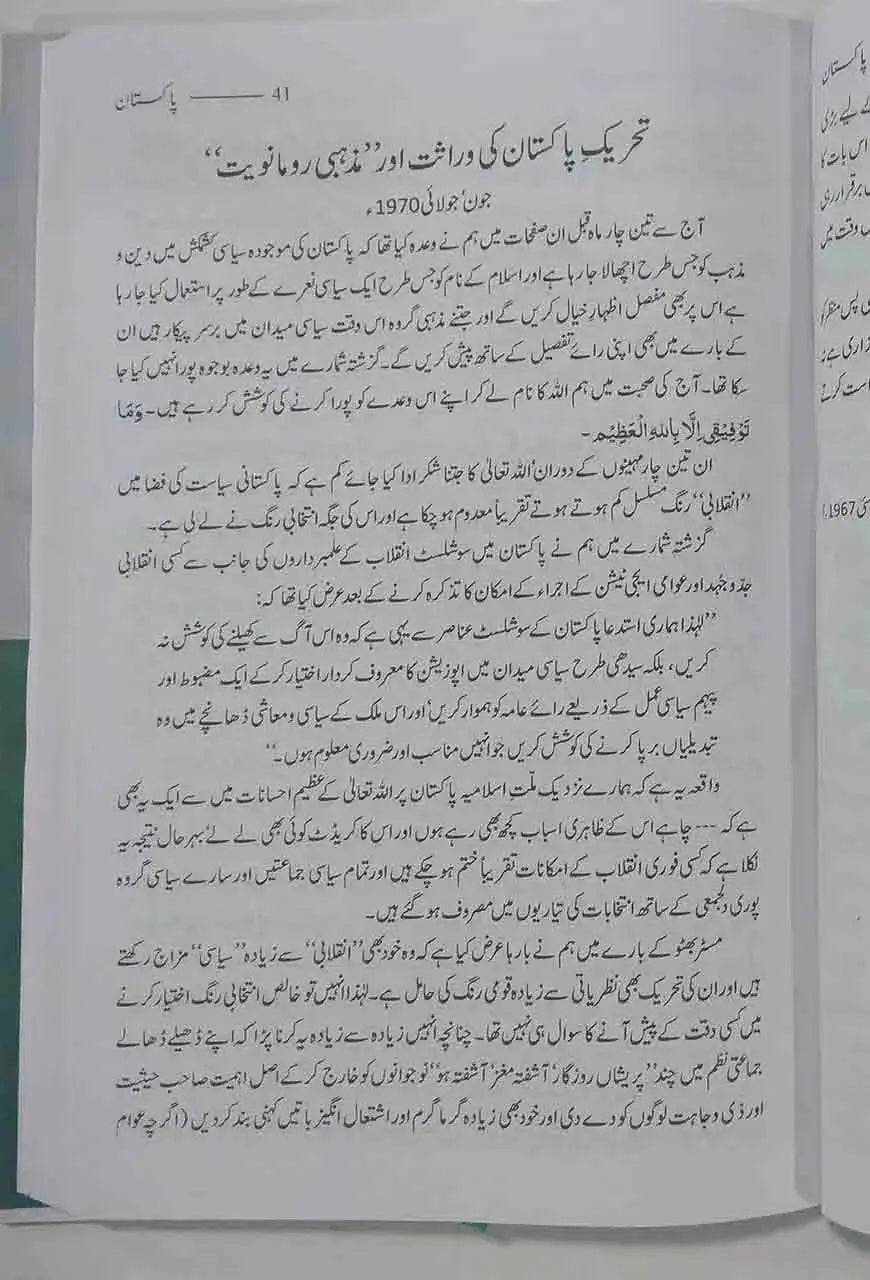 پاکستان ——— 41
تحریکِ پاکستان کی وراثت اور ”مذہبی رومانویت“
جون‘ جولائی 1970ء
آج سے تین چار ماہ قبل ان صفحات میں ہم نے وعدہ کیا تھا کہ پاکستان کی موجودہ سیاسی کشمکش میں دین و
مذہب کو جس طرح اچھالا جا رہا ہے اور اسلام کے نام کو جس طرح ایک سیاسی نعرے کے طور پر استعمال کیا جا رہا
ہے اس پر بھی مفصل اظہارِ خیال کریں گے اور جتنے مذہبی گروہ اس وقت سیاسی میدان میں برسرِ پیکار ہیں ان
کے بارے میں بھی اپنی رائے تفصیل کے ساتھ پیش کریں گے۔ گزشتہ شمارے میں یہ وعدہ بوجوہ پورا نہیں کیا جا
سکا تھا۔ آج کی صحبت میں ہم اللہ کا نام لے کر اپنے اس وعدے کو پورا کرنے کی کوشش کر رہے ہیں۔ وَمَا
تَوْفِیْقِی اِلَّا بِاللّٰہِ الْعَظِیْم۔
ان تین چار مہینوں کے دوران‘ اللہ تعالیٰ کا جتنا شکر ادا کیا جائے کم ہے کہ پاکستانی سیاست کی فضا میں
”انقلابی“ رنگ مسلسل کم ہوتے ہوتے تقریباً معدوم ہو چکا ہے اور اس کی جگہ انتخابی رنگ نے لے لی ہے۔
گزشتہ شمارے میں ہم نے پاکستان میں سوشلسٹ انقلاب کے علمبرداروں کی جانب سے کسی انقلابی
جدّوجُہد اور عوامی ایجی ٹیشن کے اجراء کے امکان کا تذکرہ کرنے کے بعد عرض کیا تھا کہ:
”لہٰذا ہماری استدعا پاکستان کے سوشلسٹ عناصر سے یہی ہے کہ وہ اس آگ سے کھیلنے کی کوشش نہ
کریں، بلکہ سیدھی طرح سیاسی میدان میں اپوزیشن کا معروف کردار اختیار کر کے ایک مضبوط اور
پیہم سیاسی عمل کے ذریعے رائے عامہ کو ہموار کریں‘ اور اس ملک کے سیاسی و معاشی ڈھانچے میں وہ
تبدیلیاں برپا کرنے کی کوشش کریں جو انہیں مناسب اور ضروری معلوم ہوں۔“
واقعہ یہ ہے کہ ہمارے نزدیک ملّتِ اسلامیہ پاکستان پر اللہ تعالیٰ کے عظیم احسانات میں سے ایک یہ بھی
ہے کہ --- چاہے اس کے ظاہری اسباب کچھ بھی رہے ہوں اور اس کا کریڈٹ کوئی بھی لے لے‘ بہرحال نتیجہ یہ
نکلا ہے کہ کسی فوری انقلاب کے امکانات تقریباً ختم ہو چکے ہیں اور تمام سیاسی جماعتیں اور سارے سیاسی گروہ
پوری دلجمعی کے ساتھ انتخابات کی تیاریوں میں مصروف ہو گئے ہیں۔
مسٹر بھٹو کے بارے میں ہم نے بارہا عرض کیا ہے کہ وہ خود بھی ”انقلابی“ سے زیادہ ”سیاسی“ مزاج رکھتے
ہیں اور ان کی تحریک بھی نظریاتی سے زیادہ قومی رنگ کی حامل ہے۔ لہٰذا انہیں تو خالص انتخابی رنگ اختیار کرنے
میں کسی دقت کے پیش آنے کا سوال ہی نہیں تھا۔ چنانچہ انہیں زیادہ سے زیادہ یہ کرنا پڑا کہ اپنے ڈھیلے ڈھالے
جماعتی نظم میں چند ”پریشاں روزگار‘ آشفتہ مغز‘ آشفتہ ہو“ نوجوانوں کو خارج کر کے اصل اہمیت صاحبِ حیثیت
اور ذی وجاہت لوگوں کو دے دی اور خود بھی زیادہ گرما گرم اور اشتعال انگیز باتیں کہنی بند کر دیں (اگرچہ عوام
پاکستان
کے لیے بڑی
اس بات کا
برقرار رہی
وقت میں
پس منظر کو
مئی 1967ء)